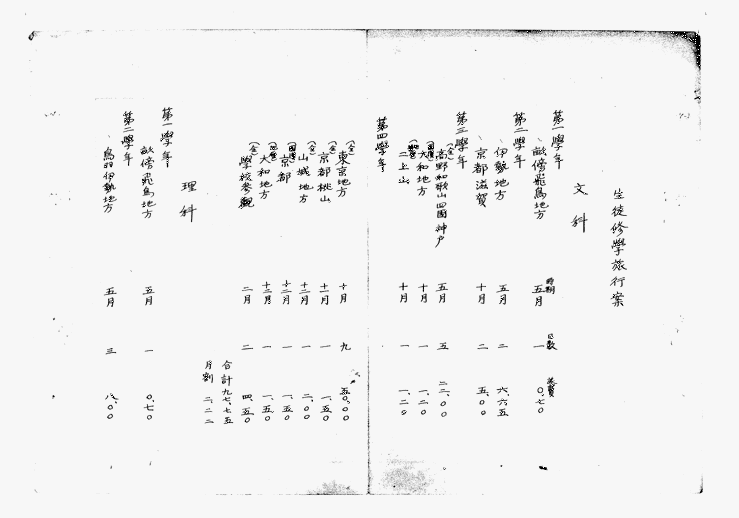 生徒修學旅行案
文科
時期 日數 旅費
第一學年
畝傍飛鳥地方 五月 一 〇.七〇
第二學年
伊勢地方 五月 二 六.六五
京都滋賀 十月 二 五.〇〇
第三學年
(全)高野和歌山四國神戸 五月 五 二二.〇〇
大和地方 十月 一 一.二〇
二上山 十月 一 一.二〇
第四學年
(全)東京地方 十月 九 五〇.〇〇
(全)京都桃山 十一月 一 一.五〇
(全)山城地方 十二月 一 二.〇〇
京都 十二月 一 一.五〇
大和地方 十二月 一 一.五〇
(全)學校參觀 二月 二 四.五〇
合計九七.七五
月割 二.二二
理科
第一學年
畝傍飛鳥地方 五月 一 〇.七〇
第二學年
鳥羽伊勢地方 五月 三 八.〇〇